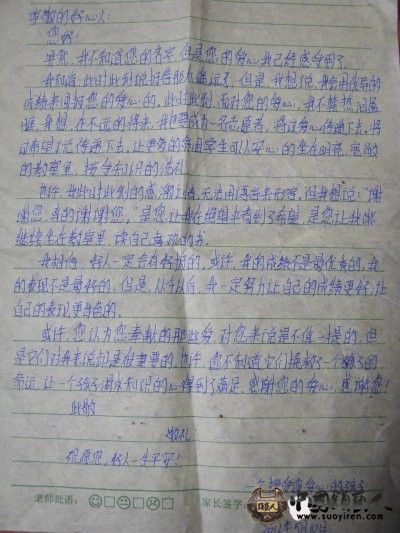 尊敬的好心人:
您好!
虽然,我不知道您的名字,但是您的爱心我已经感受到了。
我知道,此时此刻说报答那太遥远了,但是,我想说,我会用优异的
成绩来回报您的爱心的。此时此刻,面对您的爱心,我不禁热泪盈
眶,我想,在不远的将来,我也要成为一名志愿者,将这爱心传递下去,将
这希望之光传递下去,让更多的贫困学生可以安心的坐在明亮、宽敞
的教室里,接受知识的洗礼。
也许,我此时此刻的感激之情,无法用语言来形容,但我想说:"谢
谢您,真的谢谢您。"是您让我在绝望中看到了希望,是您让我能
继续坐在教室里,读自己喜欢的书。
我相信,好人一定会有好报的,或许,我的成绩不是最优秀的,我
的表现不是最好的,但是,从今以后,我一定努力让自己的成绩更好,让
自己的表现更出色的。
或许,您认为您奉献的那些爱,对您来说是不值一提的,但
是它们对我来说却是很重要的,也许,您不知道它们改变了一个孩子的
命运,让一个孩子渴求知识的心得到了满足,感谢您的爱心,感谢您!
此致
敬礼
祝愿您,好人一生平安!
一个接受您爱心的孩子
老师批语: 家长签字:
中国锁艺人
www.suoyiren.com